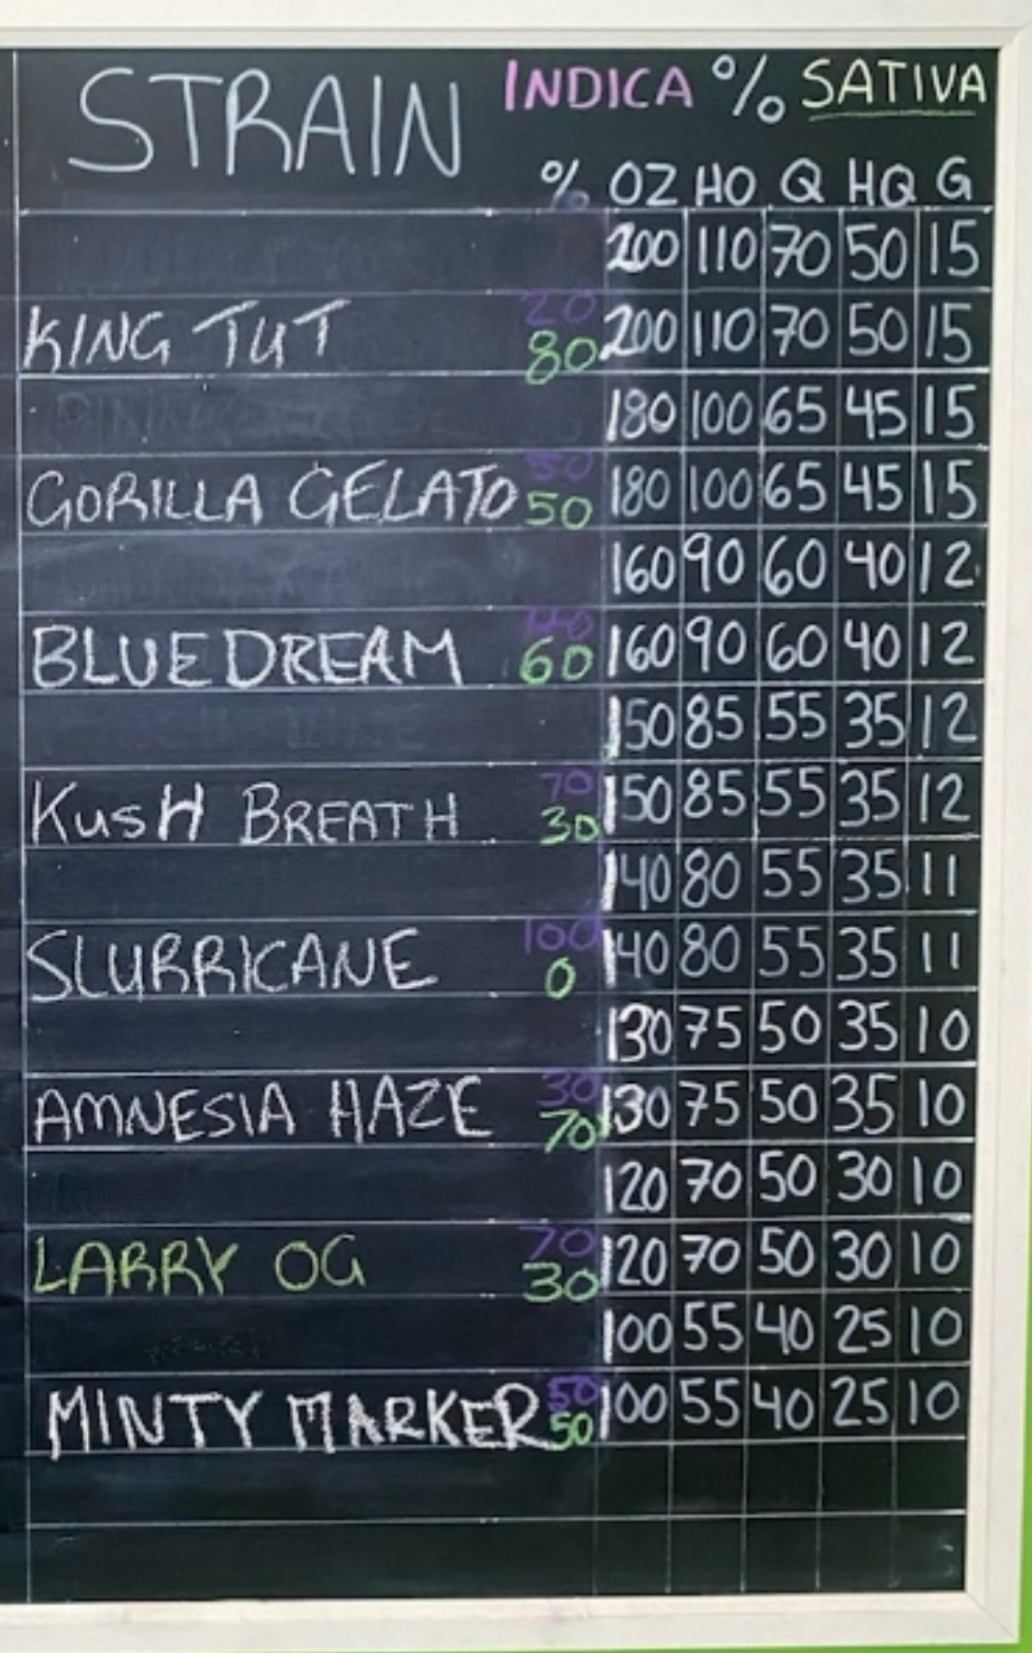 STRAIN INDICA % SATIVA
% OZ HO Q HQ G
200 110 70 50 15
KING TUT 20 80 200 110 70 50 15
180 100 65 45 15
GORILLA GELATO 50 50 180 100 65 45 15
160 90 60 40 12
BLUE DREAM 40 60 160 90 60 40 12
150 85 55 35 12
KUSH BREATH 70 30 150 85 55 35 12
140 80 55 35 11
SLURRICANE 100 0 140 80 55 35 11
130 75 50 35 10
AMNESIA HAZE 30 70 130 75 50 35 10
120 70 50 30 10
LARRY OG 70 30 120 70 50 30 10
100 55 40 25 10
MINTY MARKER 50 50 100 55 40 25 10